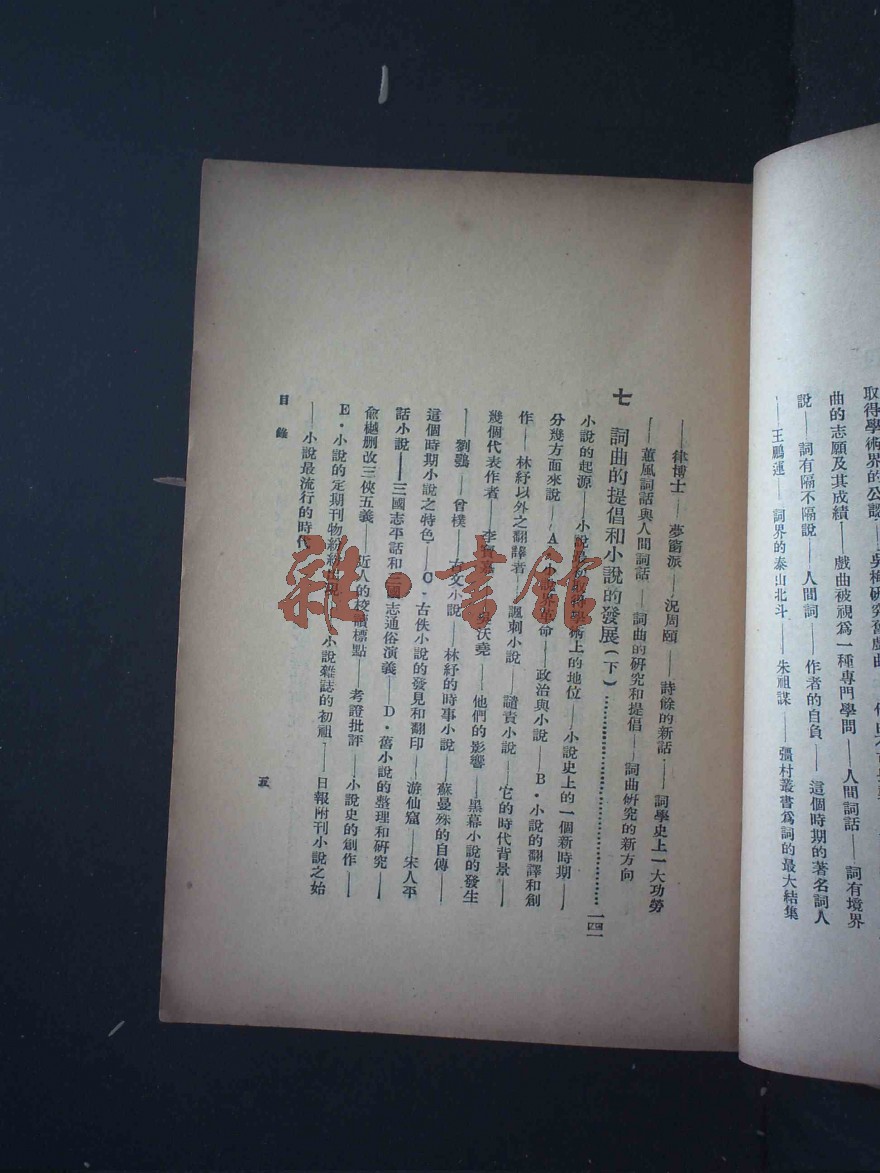 取得學術界的公認——吳梅研究舊戲曲
曲的志願及其成績——戲曲被視爲一種專門學問——人間詞話——詞有境界
說——詞有隔不隔說——人間詞——作者的自負——這個時期的著名詞人
——王鵬運——詞界的泰山北斗——朱祖謀——彊村叢書爲詞的最大結集
——律博士——夢窗派——況周頤——詩餘的新話——詞學史上一大功勞
——蕙風詞話與人間詞話——詞曲的研究和提倡——詞曲研究的新方向
七 詞曲的提倡和小說的發展(下)……一四一
小說的起源——小說最初取得學術上的地位——小說史上的一個新時期——
分幾方面來說——A·小說界革命——政治與小說——B·小說的翻譯和創
作——林紓以外之翻譯者——諷刺小說——譴責小說——它的時代背景——
幾個代表作者——李寶嘉——吳沃堯——他們的影響——黑幕小說的發生
——劉鶚——曾樸——古文小說——林紓的時事小說——蘇曼殊的自傳——
這個時期小說之特色——C·古佚小說的發見和翻印——游仙窟——宋人平
話小說——三國志平話和三國志通俗演義——D·舊小說的整理和研究——
俞樾刪改三俠五義——近人的校讀標點——考證批評——小說史的創作——
E·小說的定期刊物紛紛出現——小說雜誌的初祖——日報附刊小說之始
——小說最流行的時代
目錄
五
雜·書館